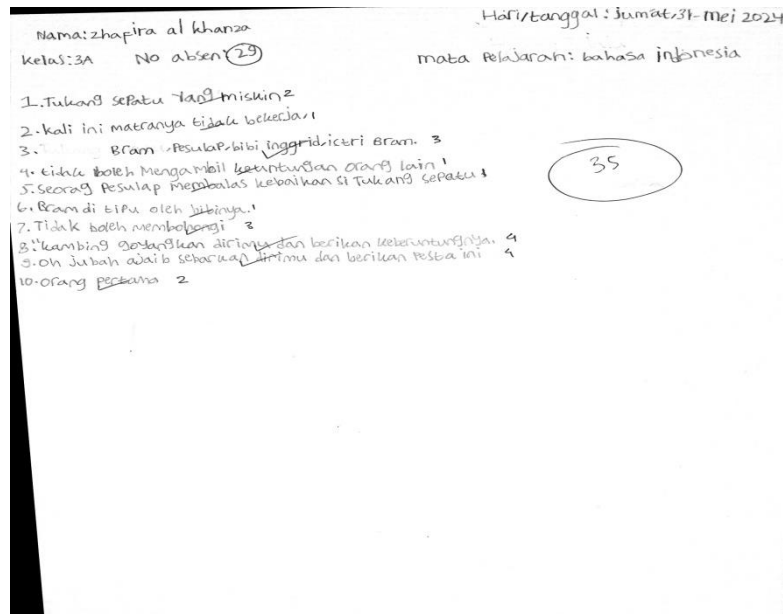 Nama: zhafira al khanza
Hari/tanggal: Jumat, 31-mei 2024
Kelas: 3A No absen: 29
mata Pelajaran: bahasa indonesia
1. Tukang sepatu yang miskin 2
2. kali ini matranya tidak bekerja. 1
3. Bram, Pesulap, bibi inggrid, ictri Bram. 3
4. tidak boleh Mengambil keuntungan orang lain 1
5. Seorag Pesulap Membalas kebaikan si Tukang sepatu 1
6. Bram di tipu oleh bibinya. 1
7. Tidak boleh membohongi 3
8. "kambing goyangkan dirimu dan berikan keberuntungnya. 4
9. oh Jubah ajaib sebarkan dirimu dan berikan Pesta ini 4
10. Orang pertama 2
35